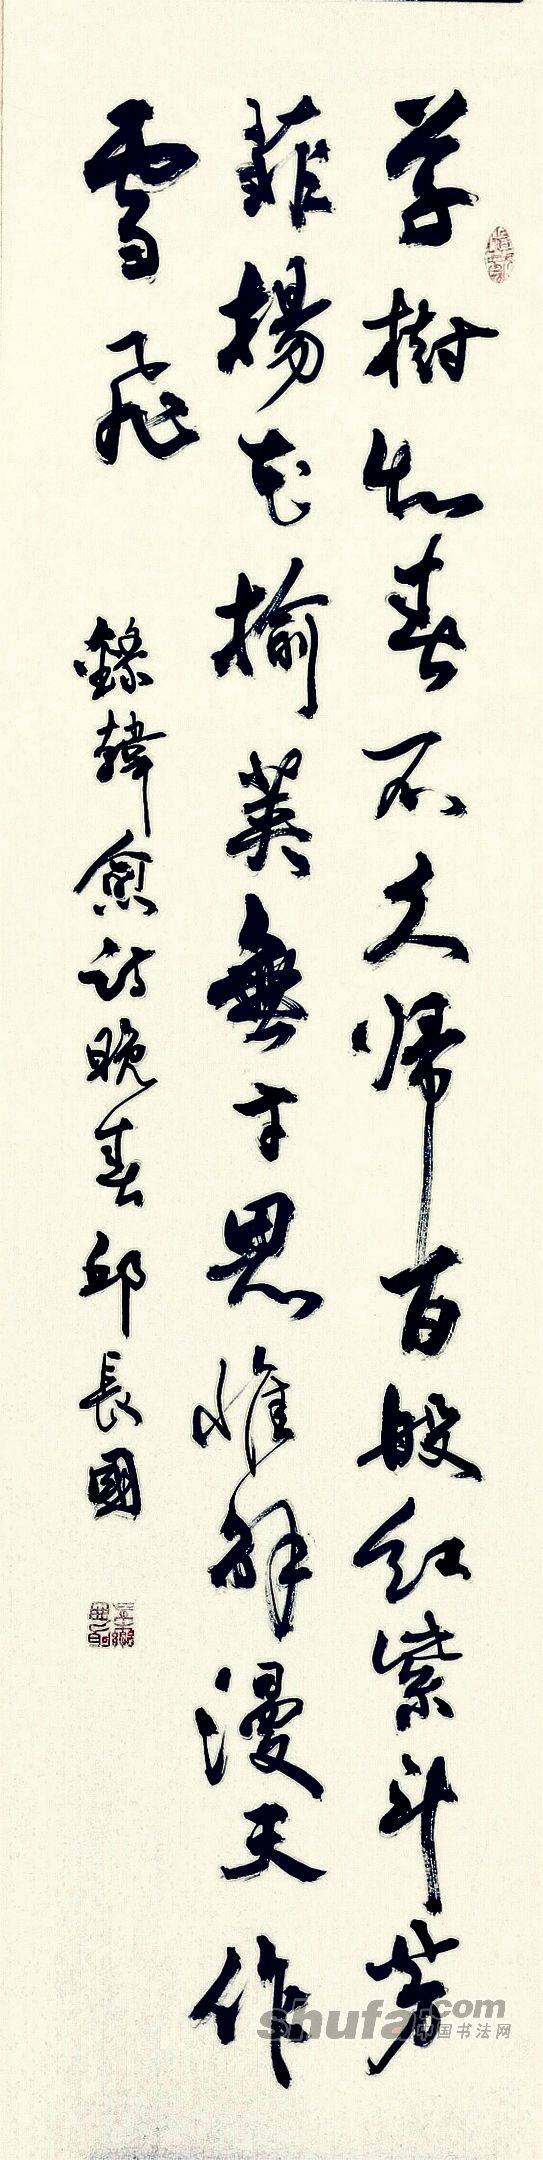 草樹知春不久歸百般紅紫斗芳
菲楊花榆莢無才思惟解漫天作
雪飛
錄韓愈詩晚春邱長國
shufa.com
中国书法网